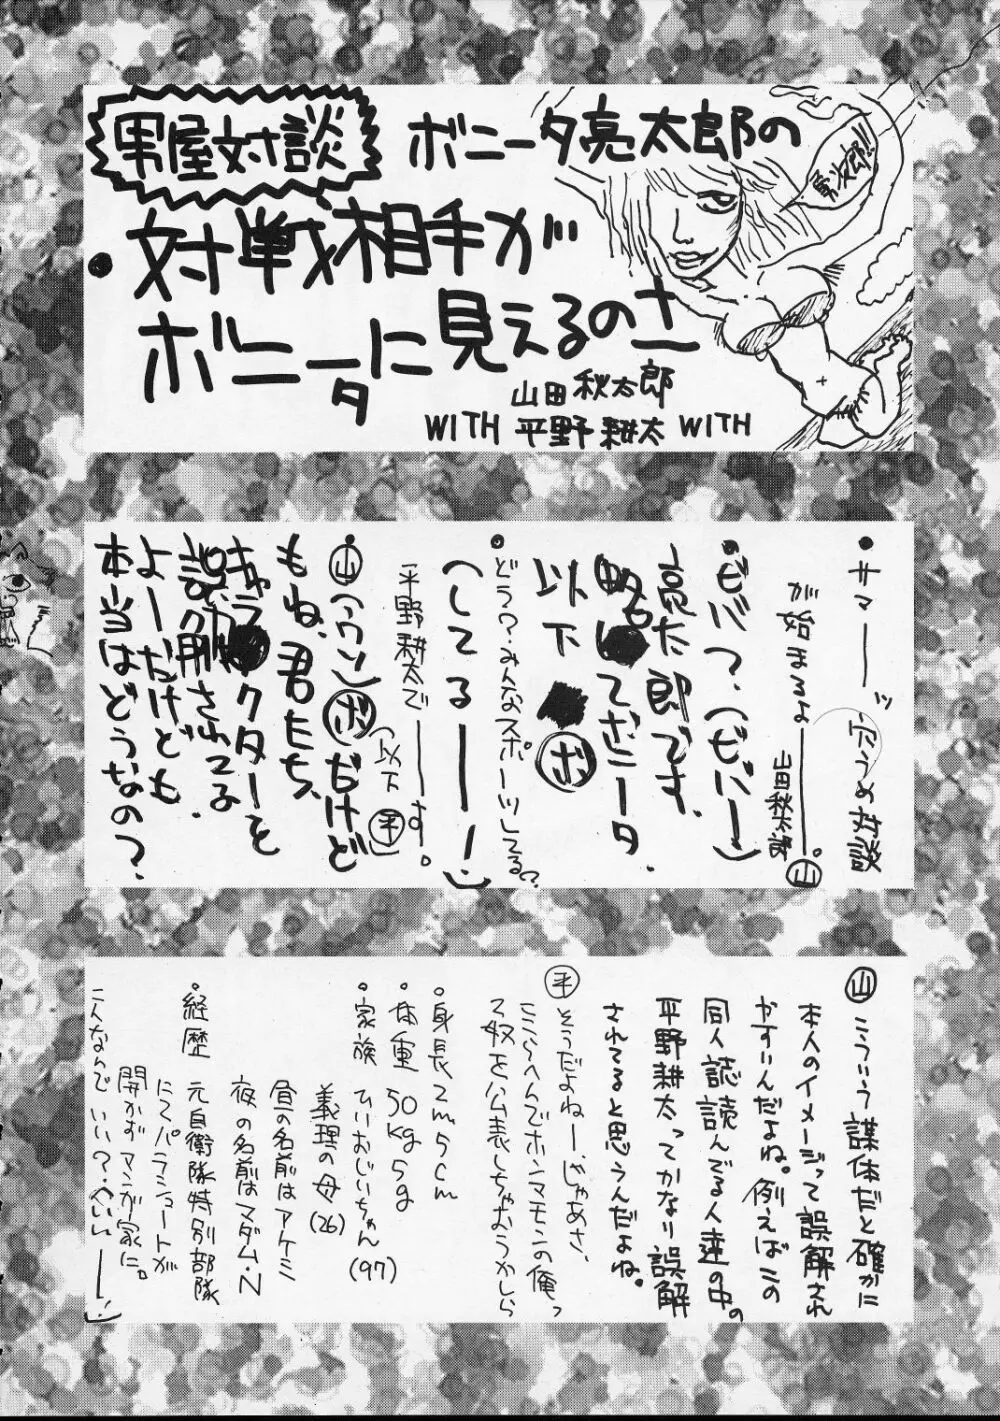 男屋対談
ボニータ亮太郎の
対戦相手が
ボニータに見えるの
山田秋太郎
WITH 平野耕太 WITH
・サマーーッ 穴うめ対談
が始まるよ――。㊤
山田秋太郎
・ビバ?、(ビバー)
亮太郎です。
略してボニータ。
以下 ボ
・どう?みんなスポーツしてる?
(してるーー!)
平野耕太でーーす。
(以下 平)
山(ウン)ボだけど
もね、君たち、
キャラクターを
誤解されてる
よーだけども
本当はどうなの?
山 こういう媒体だと確かに
本人のイメージって誤解され
やすいんだよね。例えばこの
同人誌読んでる人達の中の
平野耕太ってかなり誤解
されてると思うんだよね。
平 そうだよねー。じゃあさ、
ここらへんでホンマモンの俺っ
て奴を公表しちゃおうかしら
・身長2m5cm
・体重50kg5g
・家族 ひいおじいちゃん(97)
義理の母(26)
昼の名前はアケミ
夜の名前はマダム・N
・経歴 元自衛隊特別部隊
にてパラシュートが
開かずマンガ家に。
こんなんでいい?